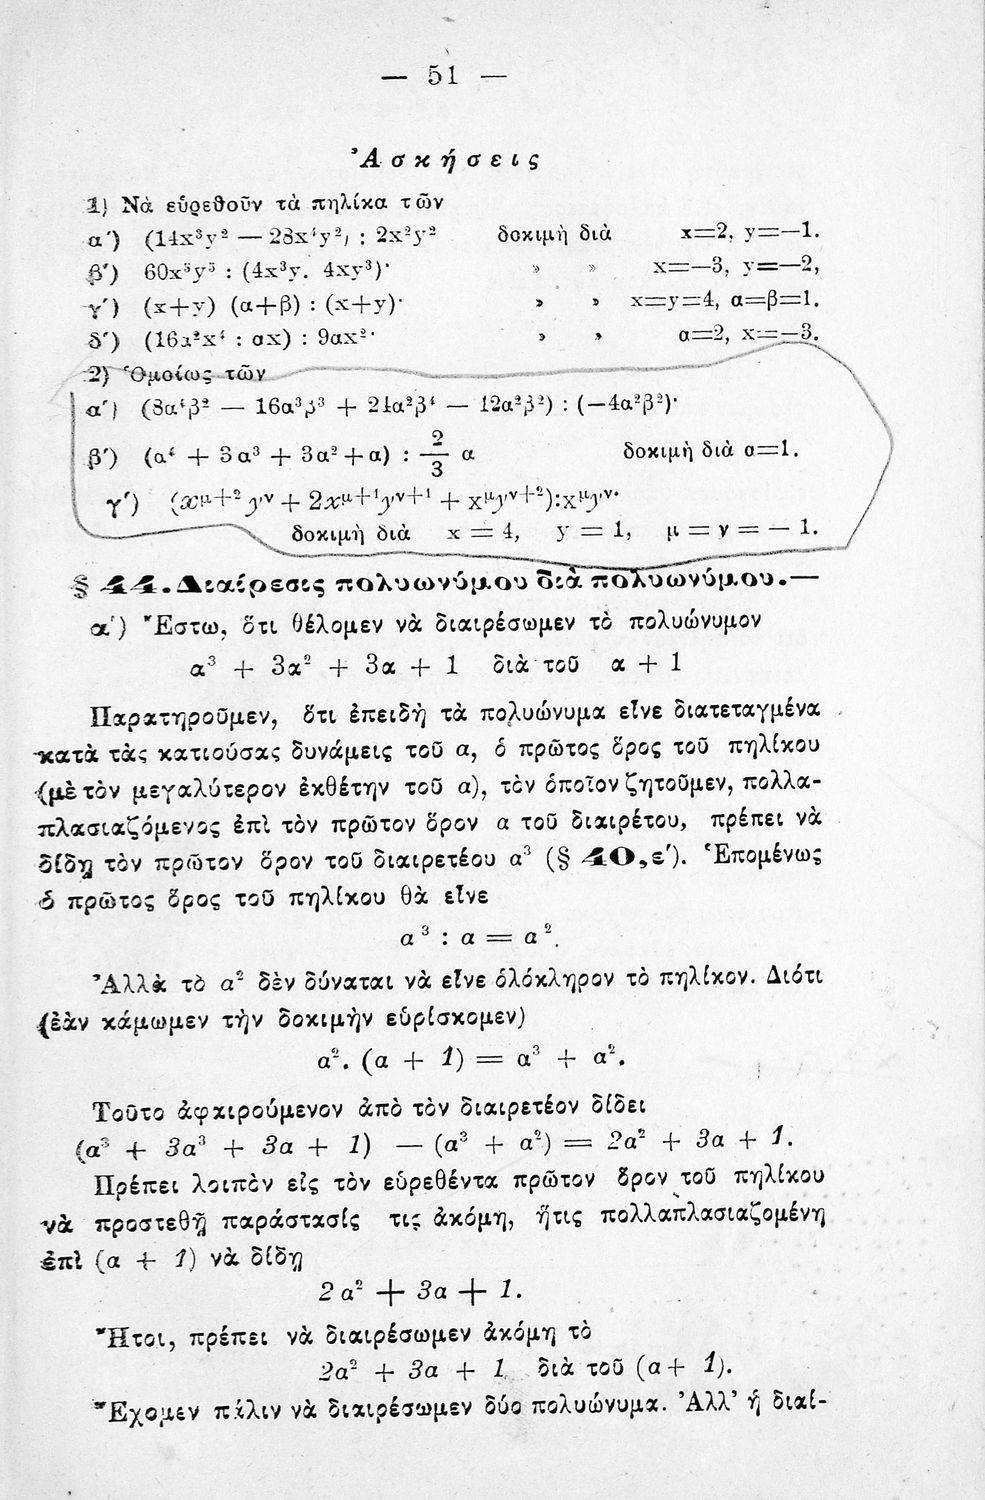 — 51 —
Ἀσκήσεις
1) Νὰ εὑρεθοῦν τὰ πηλίκα τῶν
α΄) (14x³y² — 28x⁴y²) : 2x²y² δοκιμὴ διὰ x=2, y=—1.
β΄) 60x⁵y⁵ : (4x³y. 4xy³)· » » x=—3, y=—2,
γ΄) (x+y) (α+β) : (x+y)· » » x=y=4, α=β=1.
δ΄) (16α²x⁴ : αx) : 9αx²· » » α=2, x=—3.
2) Ὁμοίως τῶν
α΄) (8α⁴β² — 16α³β³ + 24α²β⁴ — 12α²β²) : (—4α²β²)·
β΄) (α⁴ + 3α³ + 3α² + α) : 2/3 α δοκιμὴ διὰ α=1.
γ΄) (xᵘ⁺² yᵛ + 2xᵘ⁺¹yᵛ⁺¹ + xᵘyᵛ⁺²):xᵘyᵛ·
δοκιμὴ διὰ x = 4, y = 1, μ = ν = — 1.
§ 44. Διαίρεσις πολυωνύμου διὰ πολυωνύμου.—
α΄) Ἔστω, ὅτι θέλομεν νὰ διαιρέσωμεν τὸ πολυώνυμον
α³ + 3α² + 3α + 1 διὰ τοῦ α + 1
Παρατηροῦμεν, ὅτι ἐπειδὴ τὰ πολυώνυμα εἶνε διατεταγμένα
κατὰ τὰς κατιούσας δυνάμεις τοῦ α, ὁ πρῶτος ὅρος τοῦ πηλίκου
(μὲ τὸν μεγαλύτερον ἐκθέτην τοῦ α), τὸν ὁποῖον ζητοῦμεν, πολλα-
πλασιαζόμενος ἐπὶ τὸν πρῶτον ὅρον α τοῦ διαιρέτου, πρέπει νὰ
δίδῃ τὸν πρῶτον ὅρον τοῦ διαιρετέου α³ (§ 40,ε΄). Ἑπομένως
ὁ πρῶτος ὅρος τοῦ πηλίκου θὰ εἶνε
α³ : α = α².
Ἀλλὰ τὸ α² δὲν δύναται νὰ εἶνε ὁλόκληρον τὸ πηλίκον. Διότι
(ἐὰν κάμωμεν τὴν δοκιμὴν εὑρίσκομεν)
α². (α + 1) = α³ + α².
Τοῦτο ἀφαιρούμενον ἀπὸ τὸν διαιρετέον δίδει
(α³ + 3α³ + 3α + 1) — (α³ + α²) = 2α² + 3α + 1.
Πρέπει λοιπὸν εἰς τὸν εὑρεθέντα πρῶτον ὅρον τοῦ πηλίκου
νὰ προστεθῇ παράστασίς τις ἀκόμη, ἥτις πολλαπλασιαζομένη
ἐπὶ (α + 1) νὰ δίδῃ
2α² + 3α + 1.
Ἤτοι, πρέπει νὰ διαιρέσωμεν ἀκόμη τὸ
2α² + 3α + 1 διὰ τοῦ (α + 1).
Ἔχομεν πάλιν νὰ διαιρέσωμεν δύο πολυώνυμα. Ἀλλ’ ἡ διαί-